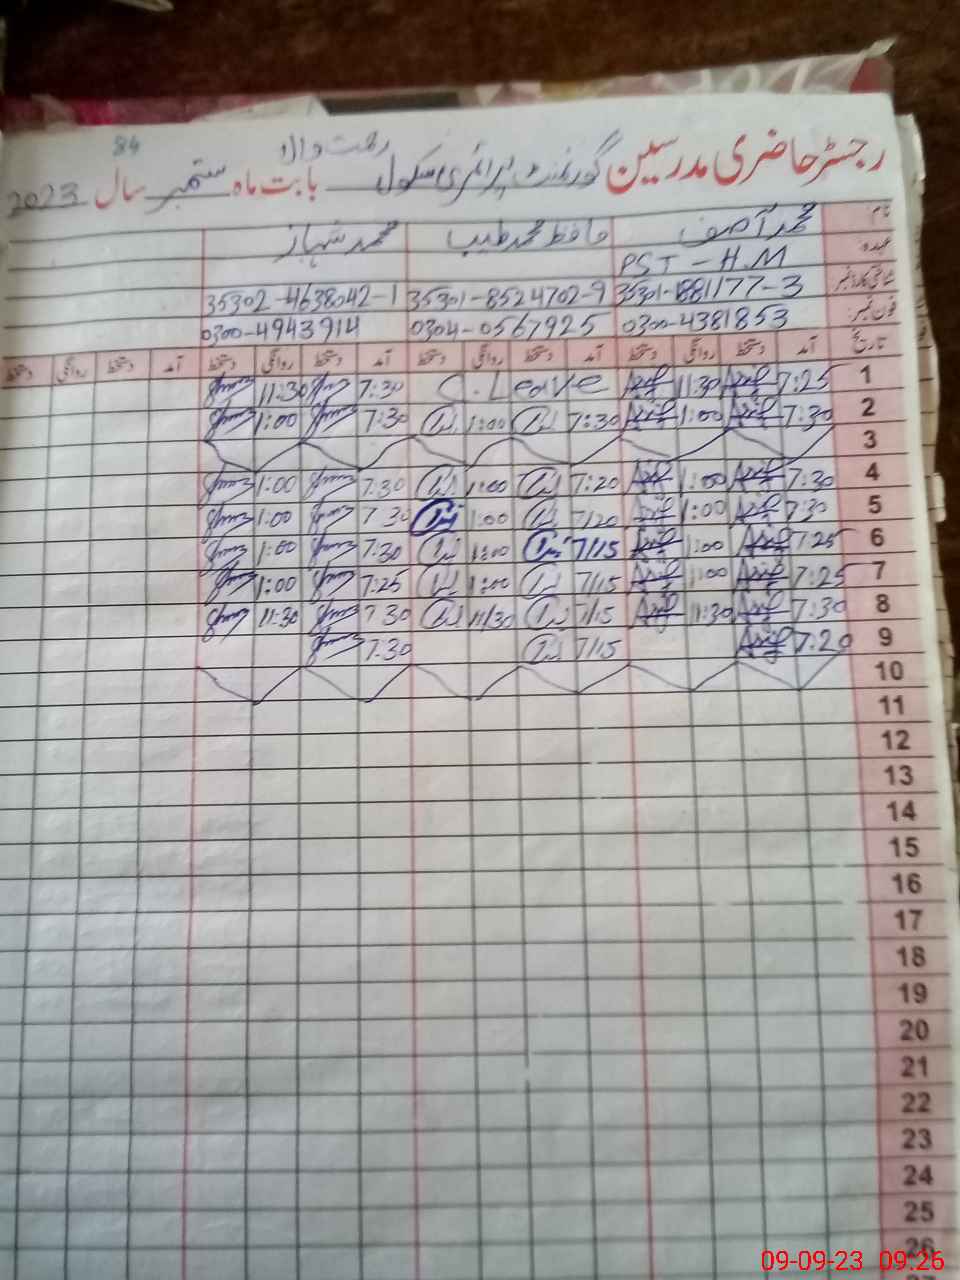 84
رجسٹر حاضری مدرسین گورنمنٹ پرائمری سکول رحمت والا بابت ماہ ستمبر سال 2023
نام محمد آصف حافظ محمد طیب محمد شہباز
عہدہ PST - H.M
شناختی کارڈ نمبر 35301-1881177-3 35301-8524702-9 35302-4638042-1
فون نمبر 0300-4381853 0304-0567925 0300-4943914
تاریخ آمد دستخط روانگی دستخط آمد دستخط روانگی دستخط آمد دستخط روانگی دستخط آمد دستخط روانگی دستخط
1 7:25 Asif 11:30 Asif C. Leave 7:30 11:30
2 7:30 Asif 1:00 Asif 7:30 1:00 7:30 1:00
3
4 7:30 Asif 1:00 Asif 7:20 1:00 7:30 1:00
5 7:30 Asif 1:00 Asif 7/20 1:00 7:30 1:00
6 7:25 Asif 1:00 Asif 7/15 1:00 7:30 1:00
7 7:25 Asif 1:00 Asif 7/15 1:00 7:25 1:00
8 7:30 Asif 11:30 Asif 7/15 11/30 7:30 11:30
9 7:20 Asif 7/15 7:30
10
11
12
13
14
15
16
17
18
19
20
21
22
23
24
25
26
09-09-23 09:26